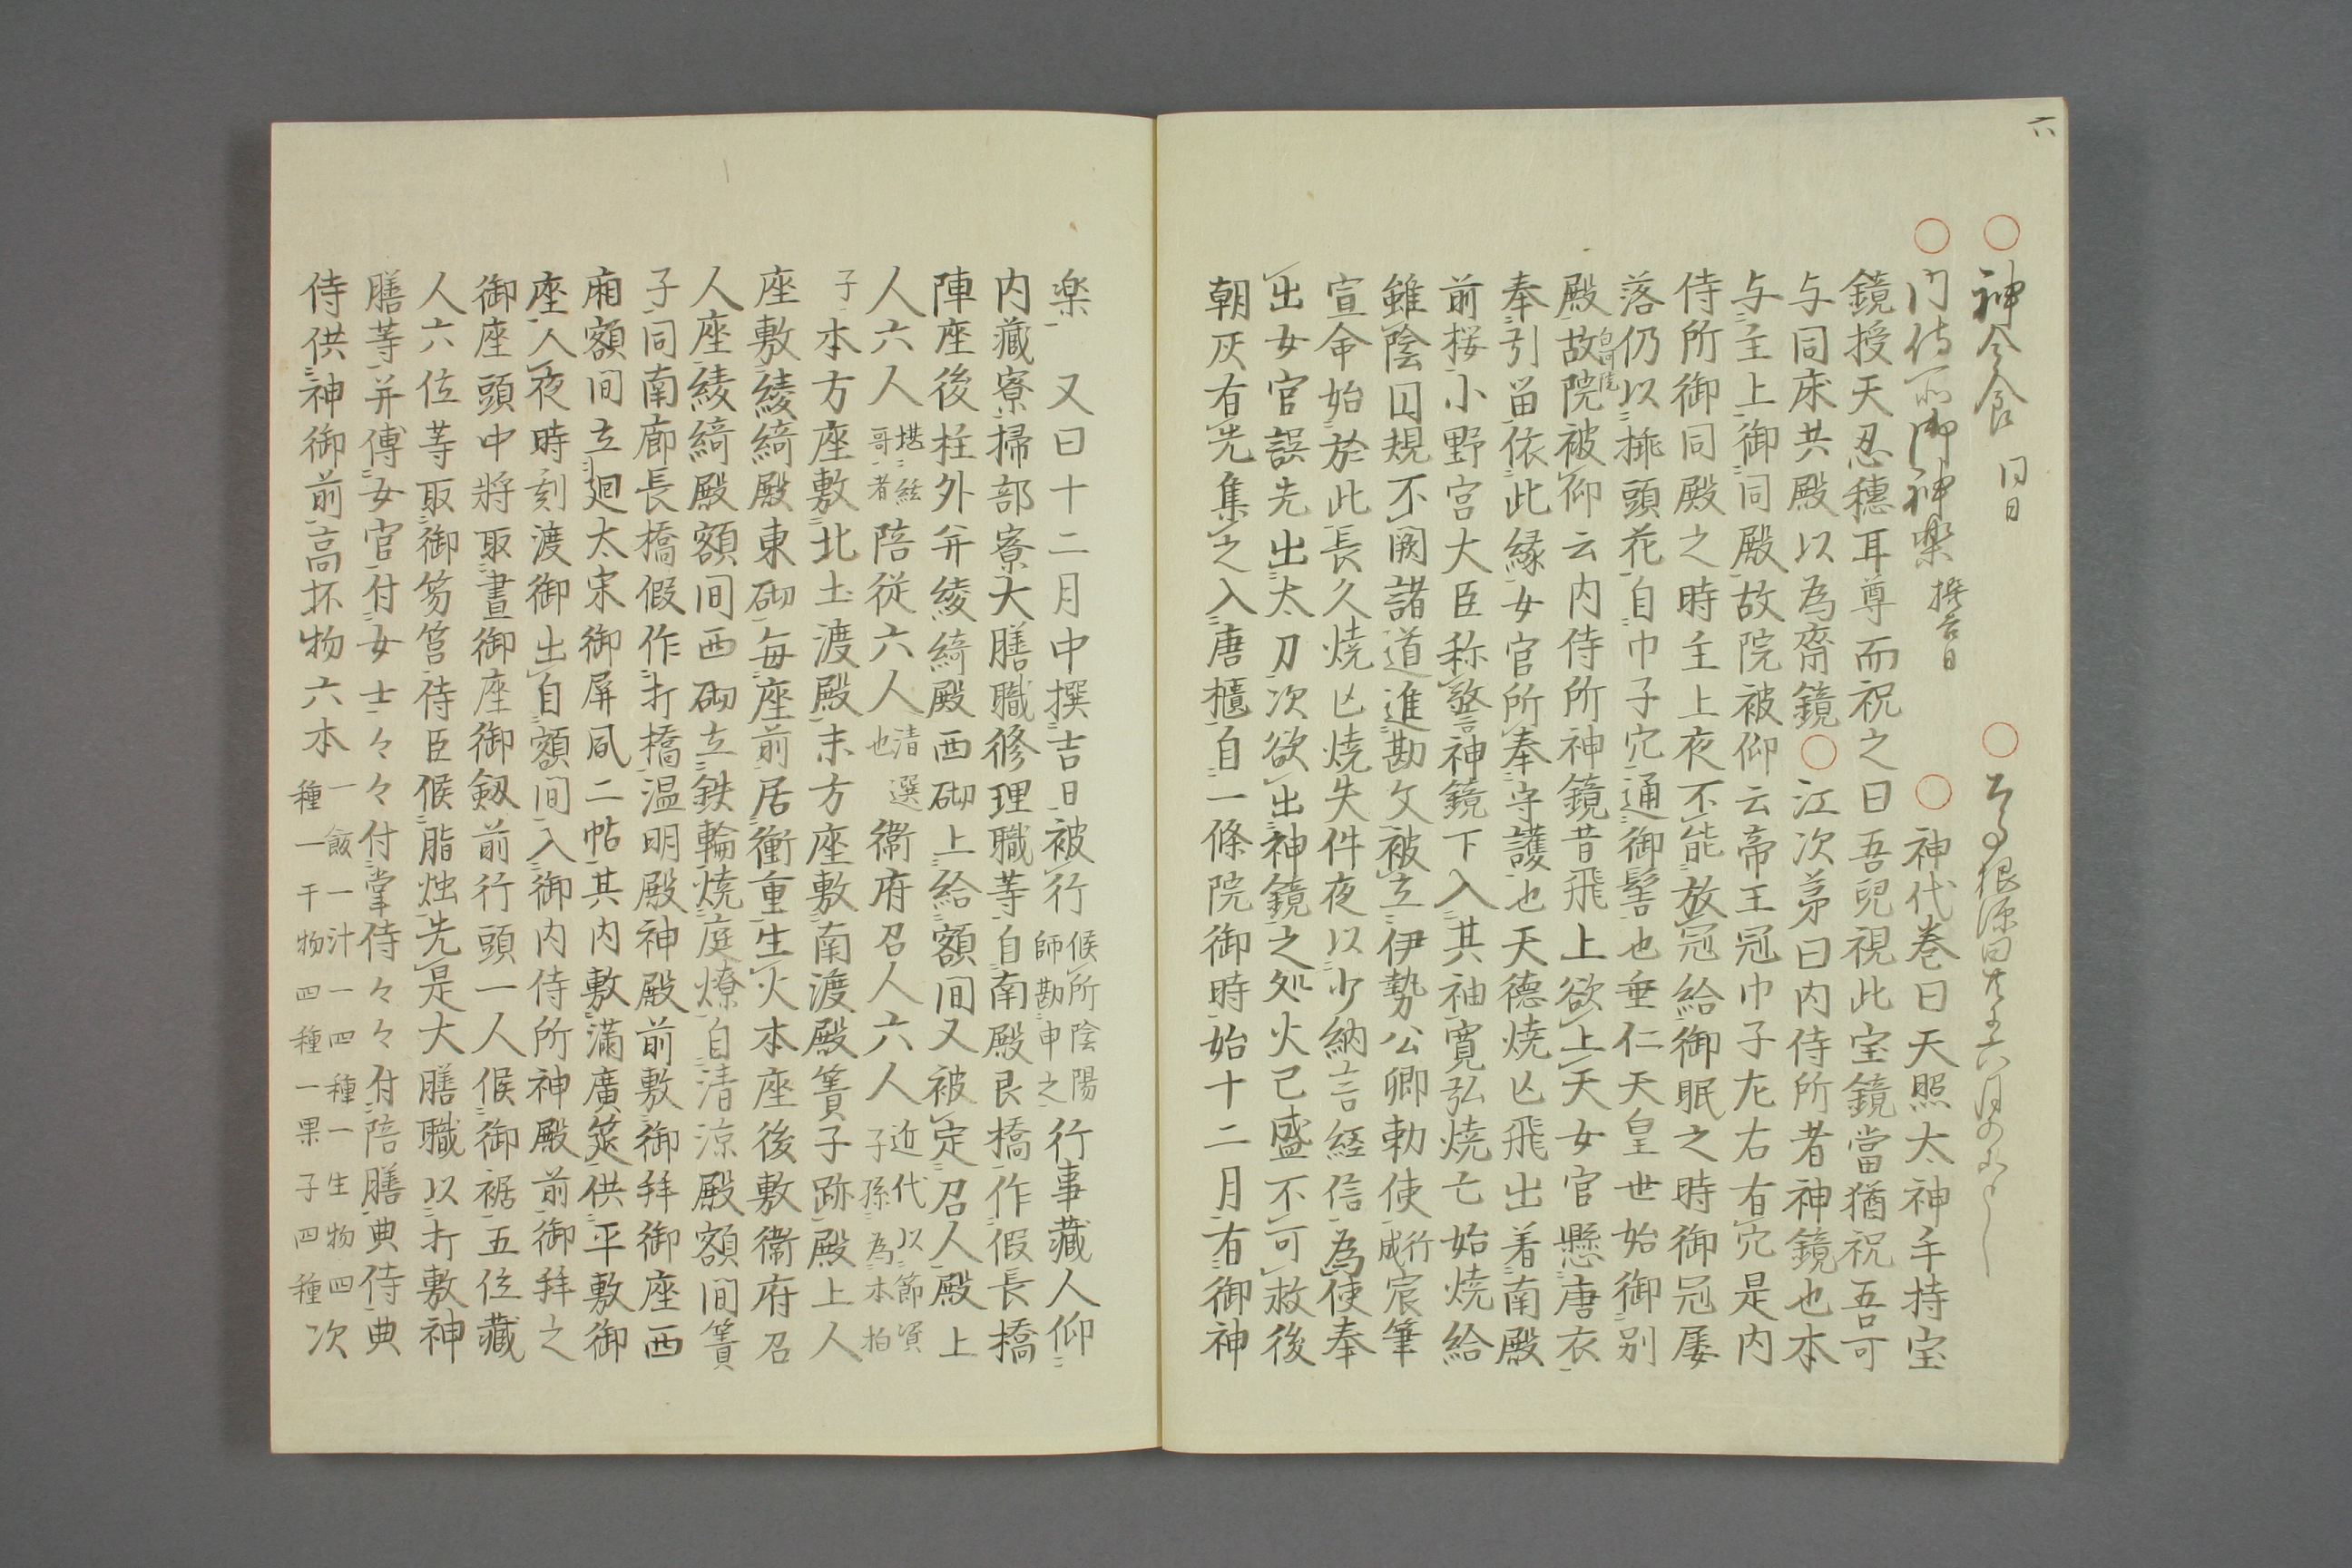 六
神今食 同日 ○公事根源曰
○内侍所御神楽 撰吉日 ○神代巻曰天照太神手持宝
鏡授天忍穗耳尊而祝之曰吾兒視此宝鏡當猶視吾可
与同床共殿以為齋鏡○江次第曰内侍所者神鏡也本
与主上御同殿故院被仰云帝王冠巾子左右有穴是内
侍所御同殿之時主上夜不能放冠給御眠之時御冠屡
落仍以挿頭花自巾子穴通御髻也垂仁天皇世始御別
殿故院白河院被仰云内侍所神鏡昔飛上欲上天女官懸唐衣
奉引留依此縁女官所奉守護也天德焼亡飛出着南殿
前桜小野宮大臣称警神鏡下入其袖寛弘焼亡始焼給
雖陰囙規不闕諸道進勘文被立伊勢公卿勅使行成宸筆
宣命始於此長久焼亡焼失件夜以少納言経信為使奉
出女官誤先出太刀次欲出神鏡之処火已盛不可救後
朝灰有光集之入唐櫃自一條院御時始十二月有御神
楽 又曰十二月中撰吉日被行候所陰陽師勘申之行事藏人仰
内藏寮掃部寮大膳職修理職等自南殿艮橋作假長橋
陣座後柱外并綾綺殿西砌上給額間又被定召人殿上
人六人堪絃哥者陪從六人清選也衞府召人六人近代以節資子孫為本拍
子本方座敷北土渡殿末方座敷南渡殿簀子跡殿上人
座敷綾綺殿東砌毎座前居衝重生火本座後敷衞府召
人座綾綺殿額間西砌立鉄輪焼庭燎自清涼殿額間簀
子同南廊長橋假作打橋温明殿神殿前敷御拜御座西
廂額間立廻太宋御屏風二帖其内敷滿廣筵供平敷御
座人夜時刻渡御出自額間入御内侍所神殿前御拜之
御座頭中將取晝御座御劔前行頭一人候御裾五位藏
人六位等取御笏筥侍臣候脂燭先是大膳職以打敷神
膳等并傳女官付女士々々付掌侍々々付陪膳典侍典
侍供神御前高坏物六本一種飯一汁一四種一生物四種一干物四種一果子四種次